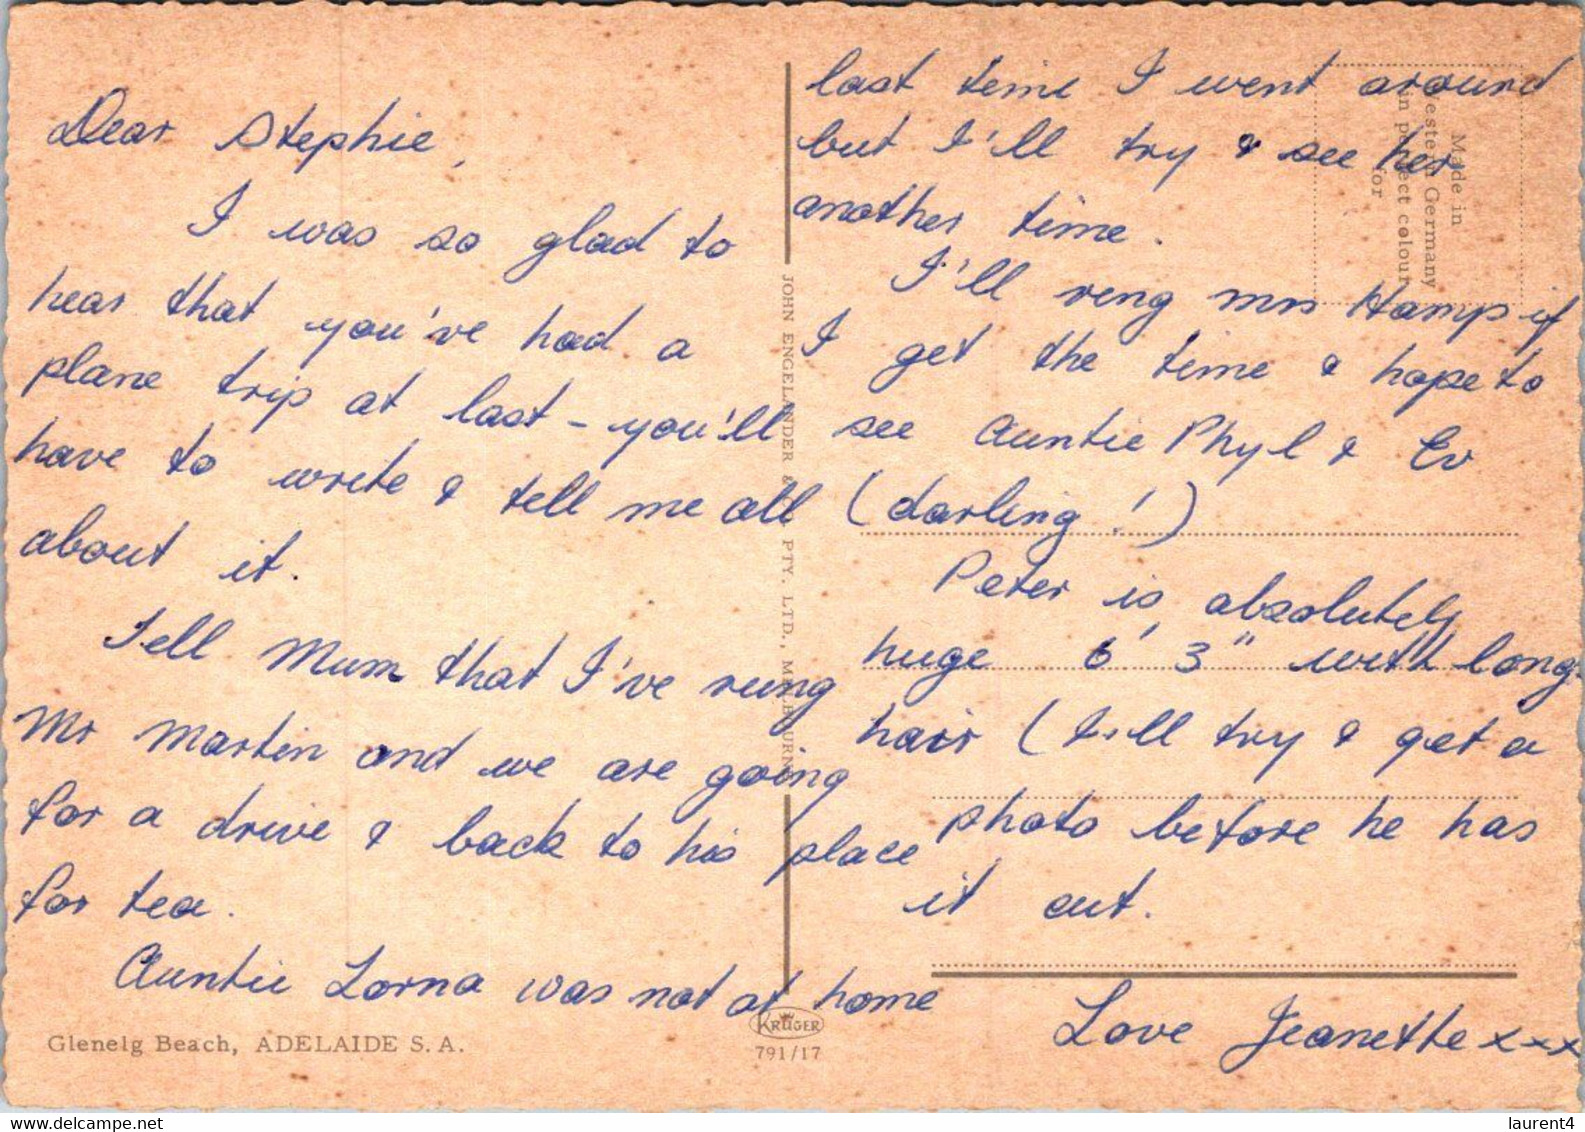 Dear Stephie,
I was so glad to
hear that you've had a
plane trip at last - you'll
have to write & tell me all
about it.
Tell Mum that I've rung
Mr Martin and we are going
for a drive & back to his place
for tea.
Auntie Lorna was not at home
last time I went around
but I'll try & see her
another time.
I'll ring Mrs Hamp if
I get the time & hope to
see Auntie Phyl & Ev
(darling!)
Peter is absolutely
huge 6' 3" with long
hair (I'll try & get a
photo before he has
it cut.
Love Jeanette xxx
Made in
Western Germany
in perfect colour
for
JOHN ENGELANDER & CO. PTY. LTD., MELBOURNE
Glenelg Beach, ADELAIDE S. A.
KRÜGER
791/17
www.delcampe.net
laurent4